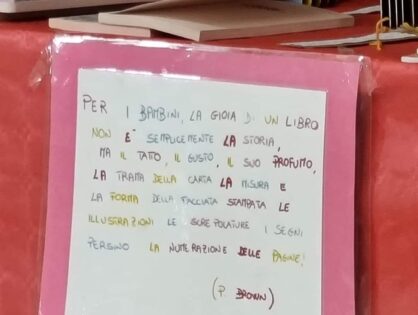 PER I BAMBINI, LA GIOIA DI UN LIBRO
NON È SEMPLICEMENTE LA STORIA,
MA IL TATTO, IL GUSTO, IL SUO PROFUMO,
LA TRAMA DELLA CARTA LA MISURA E
LA FORMA DELLA FACCIATA STAMPATA LE
ILLUSTRAZIONI LE SCREPOLATURE I SEGNI
PERSINO LA NUMERAZIONE DELLE PAGINE!
(P. BROWN)